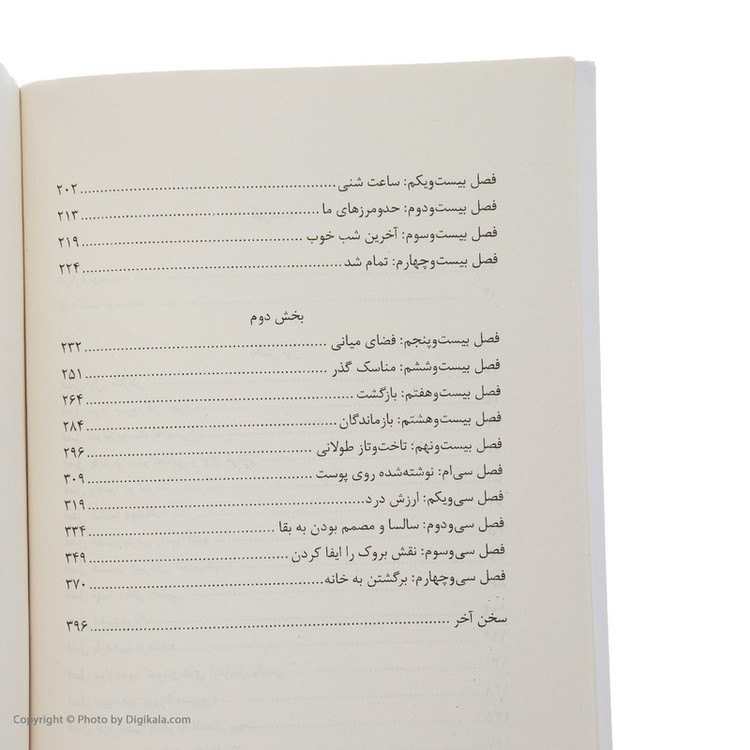 فصل بیست‌ویکم: ساعت شنی ........................................................ ۲۰۲
فصل بیست‌ودوم: حدومرزهای ما .................................................... ۲۱۳
فصل بیست‌وسوم: آخرین شب خوب ................................................ ۲۱۹
فصل بیست‌وچهارم: تمام شد ........................................................ ۲۲۴
بخش دوم
فصل بیست‌وپنجم: فضای میانی .................................................... ۲۳۲
فصل بیست‌وششم: مناسک گذر .................................................... ۲۵۱
فصل بیست‌وهفتم: بازگشت ........................................................ ۲۶۴
فصل بیست‌وهشتم: بازماندگان ...................................................... ۲۸۴
فصل بیست‌ونهم: تاخت‌وتاز طولانی ................................................ ۲۹۶
فصل سی‌ام: نوشته‌شده روی پوست ................................................ ۳۰۹
فصل سی‌ویکم: ارزش درد ............................................................ ۳۱۹
فصل سی‌ودوم: سالسا و مصمم بودن به بقا ........................................ ۳۳۴
فصل سی‌وسوم: نقش بروک را ایفا کردن .......................................... ۳۴۹
فصل سی‌وچهارم: برگشتن به خانه .................................................. ۳۷۰
سخن آخر .............................................................................. ۳۹۶
Copyright © Photo by Digikala.com